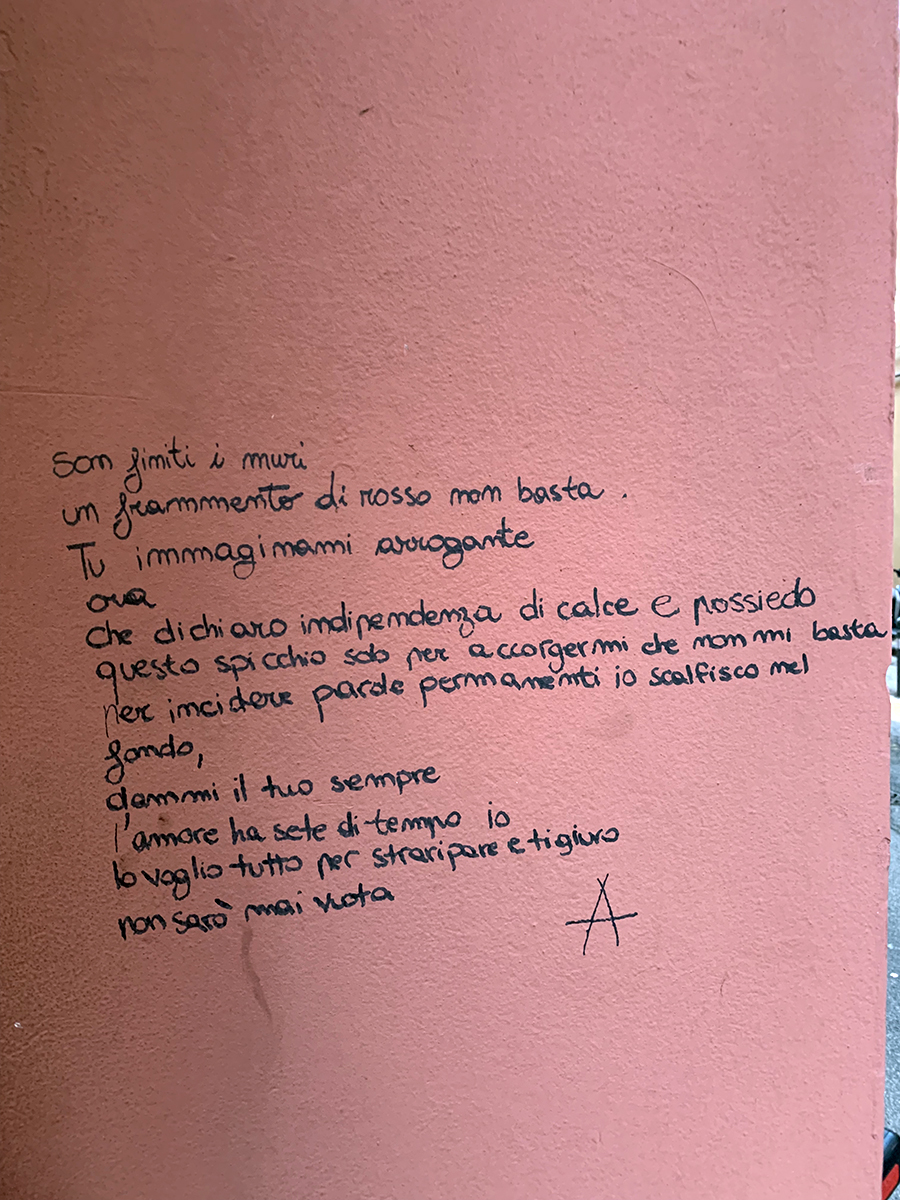 son finiti i muri
un frammmento di rosso non basta.
Tu immaginami arrogante
ora
che dichiaro indipendenza di calce e possiedo
questo spicchio solo per accorgermi che non mi basta
per incidere parole permanenti io scalfisco nel
fondo,
dammi il tuo sempre
l'amore ha sete di tempo io
lo voglio tutto per straripare e ti giuro
non sarò mai vuota
A